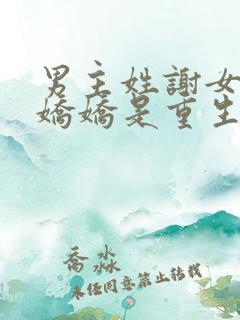 男主姓謝女
嬌嬌是重生
喬淼
未經同意禁止轉載